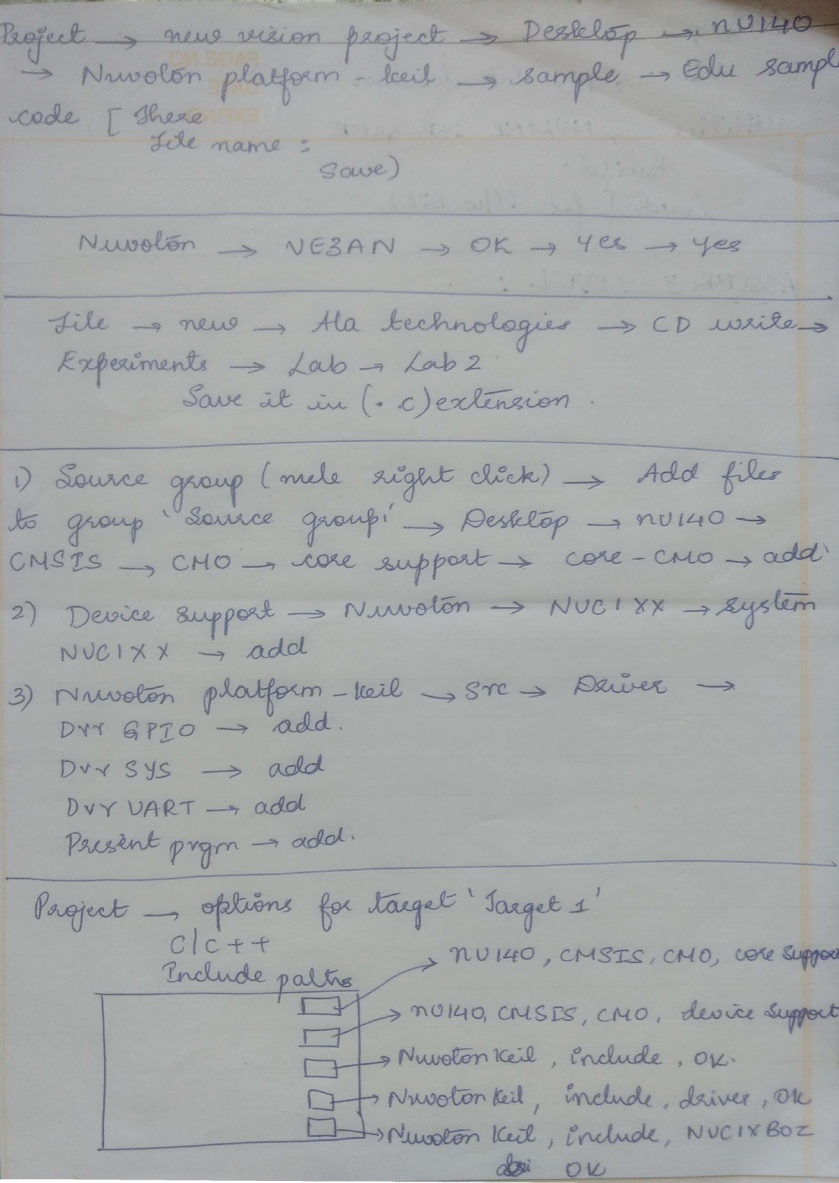 Project → new vision project → Desktop → nU140
→ Nuvoton platform - keil → sample → Edu sampl
code [ There
File name :
Save)
Nuvoton → NE3AN → OK → Yes → yes
File → new → Ala technologies → CD write →
Experiments → Lab → Lab 2
Save it in (. c) extension .
1) Source group (mele right click) → Add files
to group 'Source group' → Desktop → nU140 →
CMSIS → CMO → core support → core - CMO → add
2) Device support → Nuvoton → NUC1XX → system
NUC1XX → add
3) Nuvoton platform - keil → Src → Driver →
Dvr GPIO → add.
Dvr SYS → add
Dvr UART → add
Present prgm → add.
Project → options for target 'Target 1'
C/C++
Include paths
→ nU140, CMSIS, CMO, core suppor
→ nU140, CMSIS, CMO, device support
→ Nuvoton Keil, include, OK.
→ Nuvoton Keil, include, driver, OK
→ Nuvoton Keil, include, NUC1XB0Z
OK